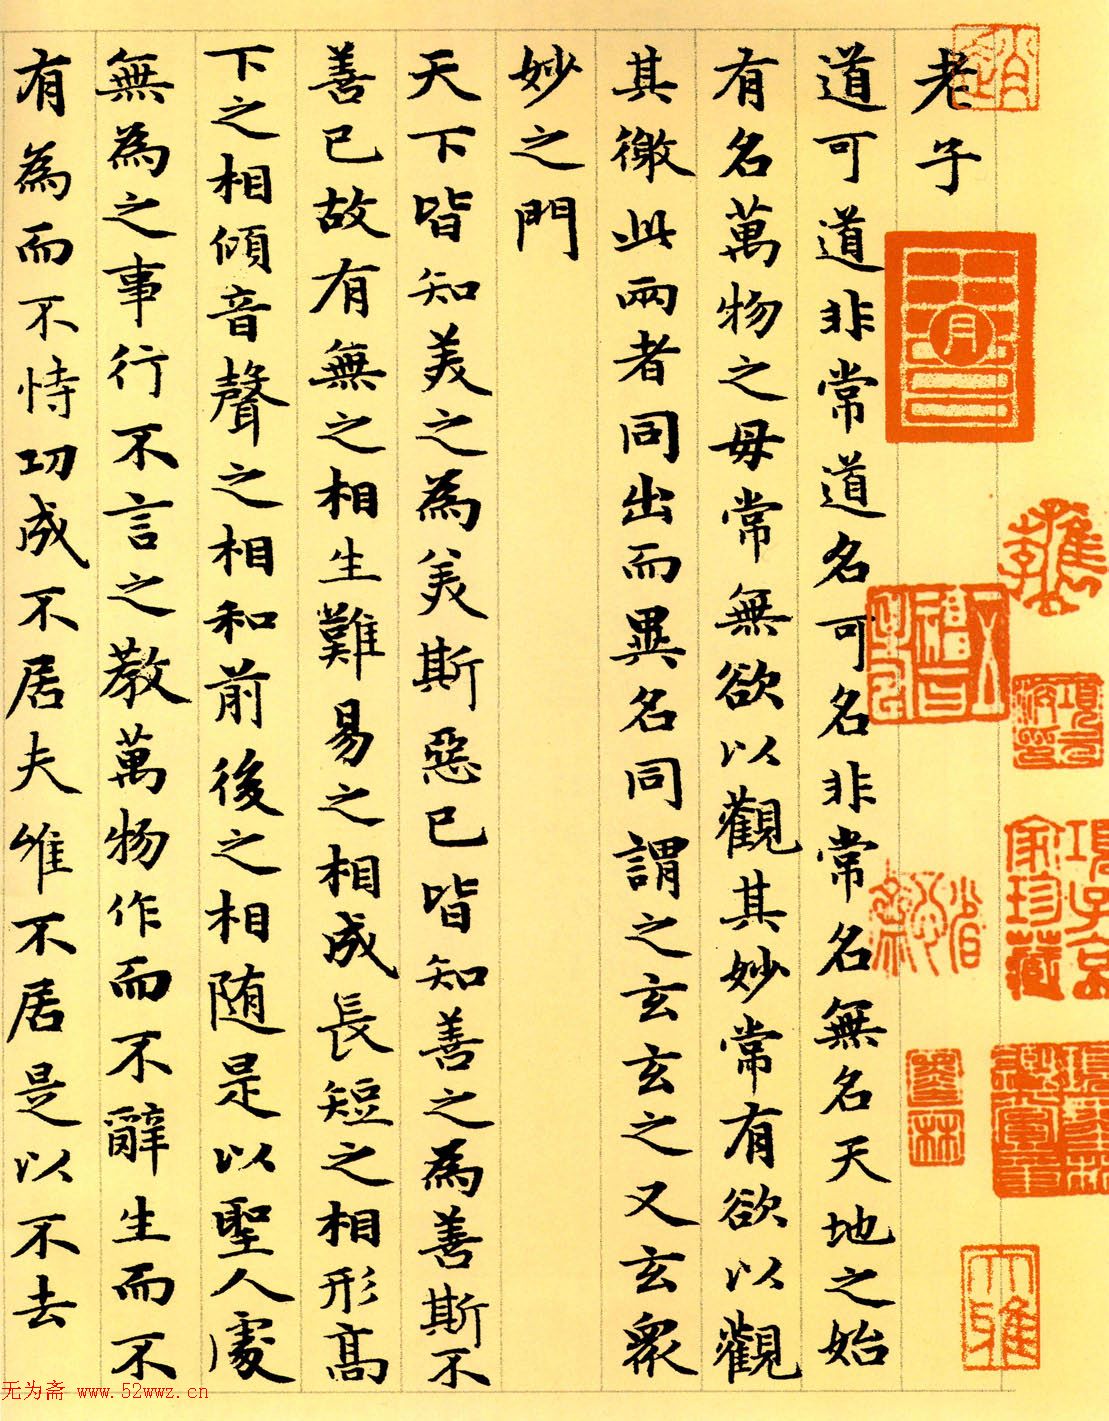 老子
道可道非常道名可名非常名無名天地之始
有名萬物之母常無欲以觀其妙常有欲以觀
其徼此兩者同出而異名同謂之玄玄之又玄衆
妙之門
天下皆知美之為美斯惡已皆知善之為善斯不
善已故有無之相生難易之相成長短之相形髙
下之相傾音聲之相和前後之相随是以聖人處
無為之事行不言之教萬物作而不辭生而不
有為而不恃功成不居夫惟不居是以不去
項子京家珍藏
大雅
无为斋 www.52wwz.cn